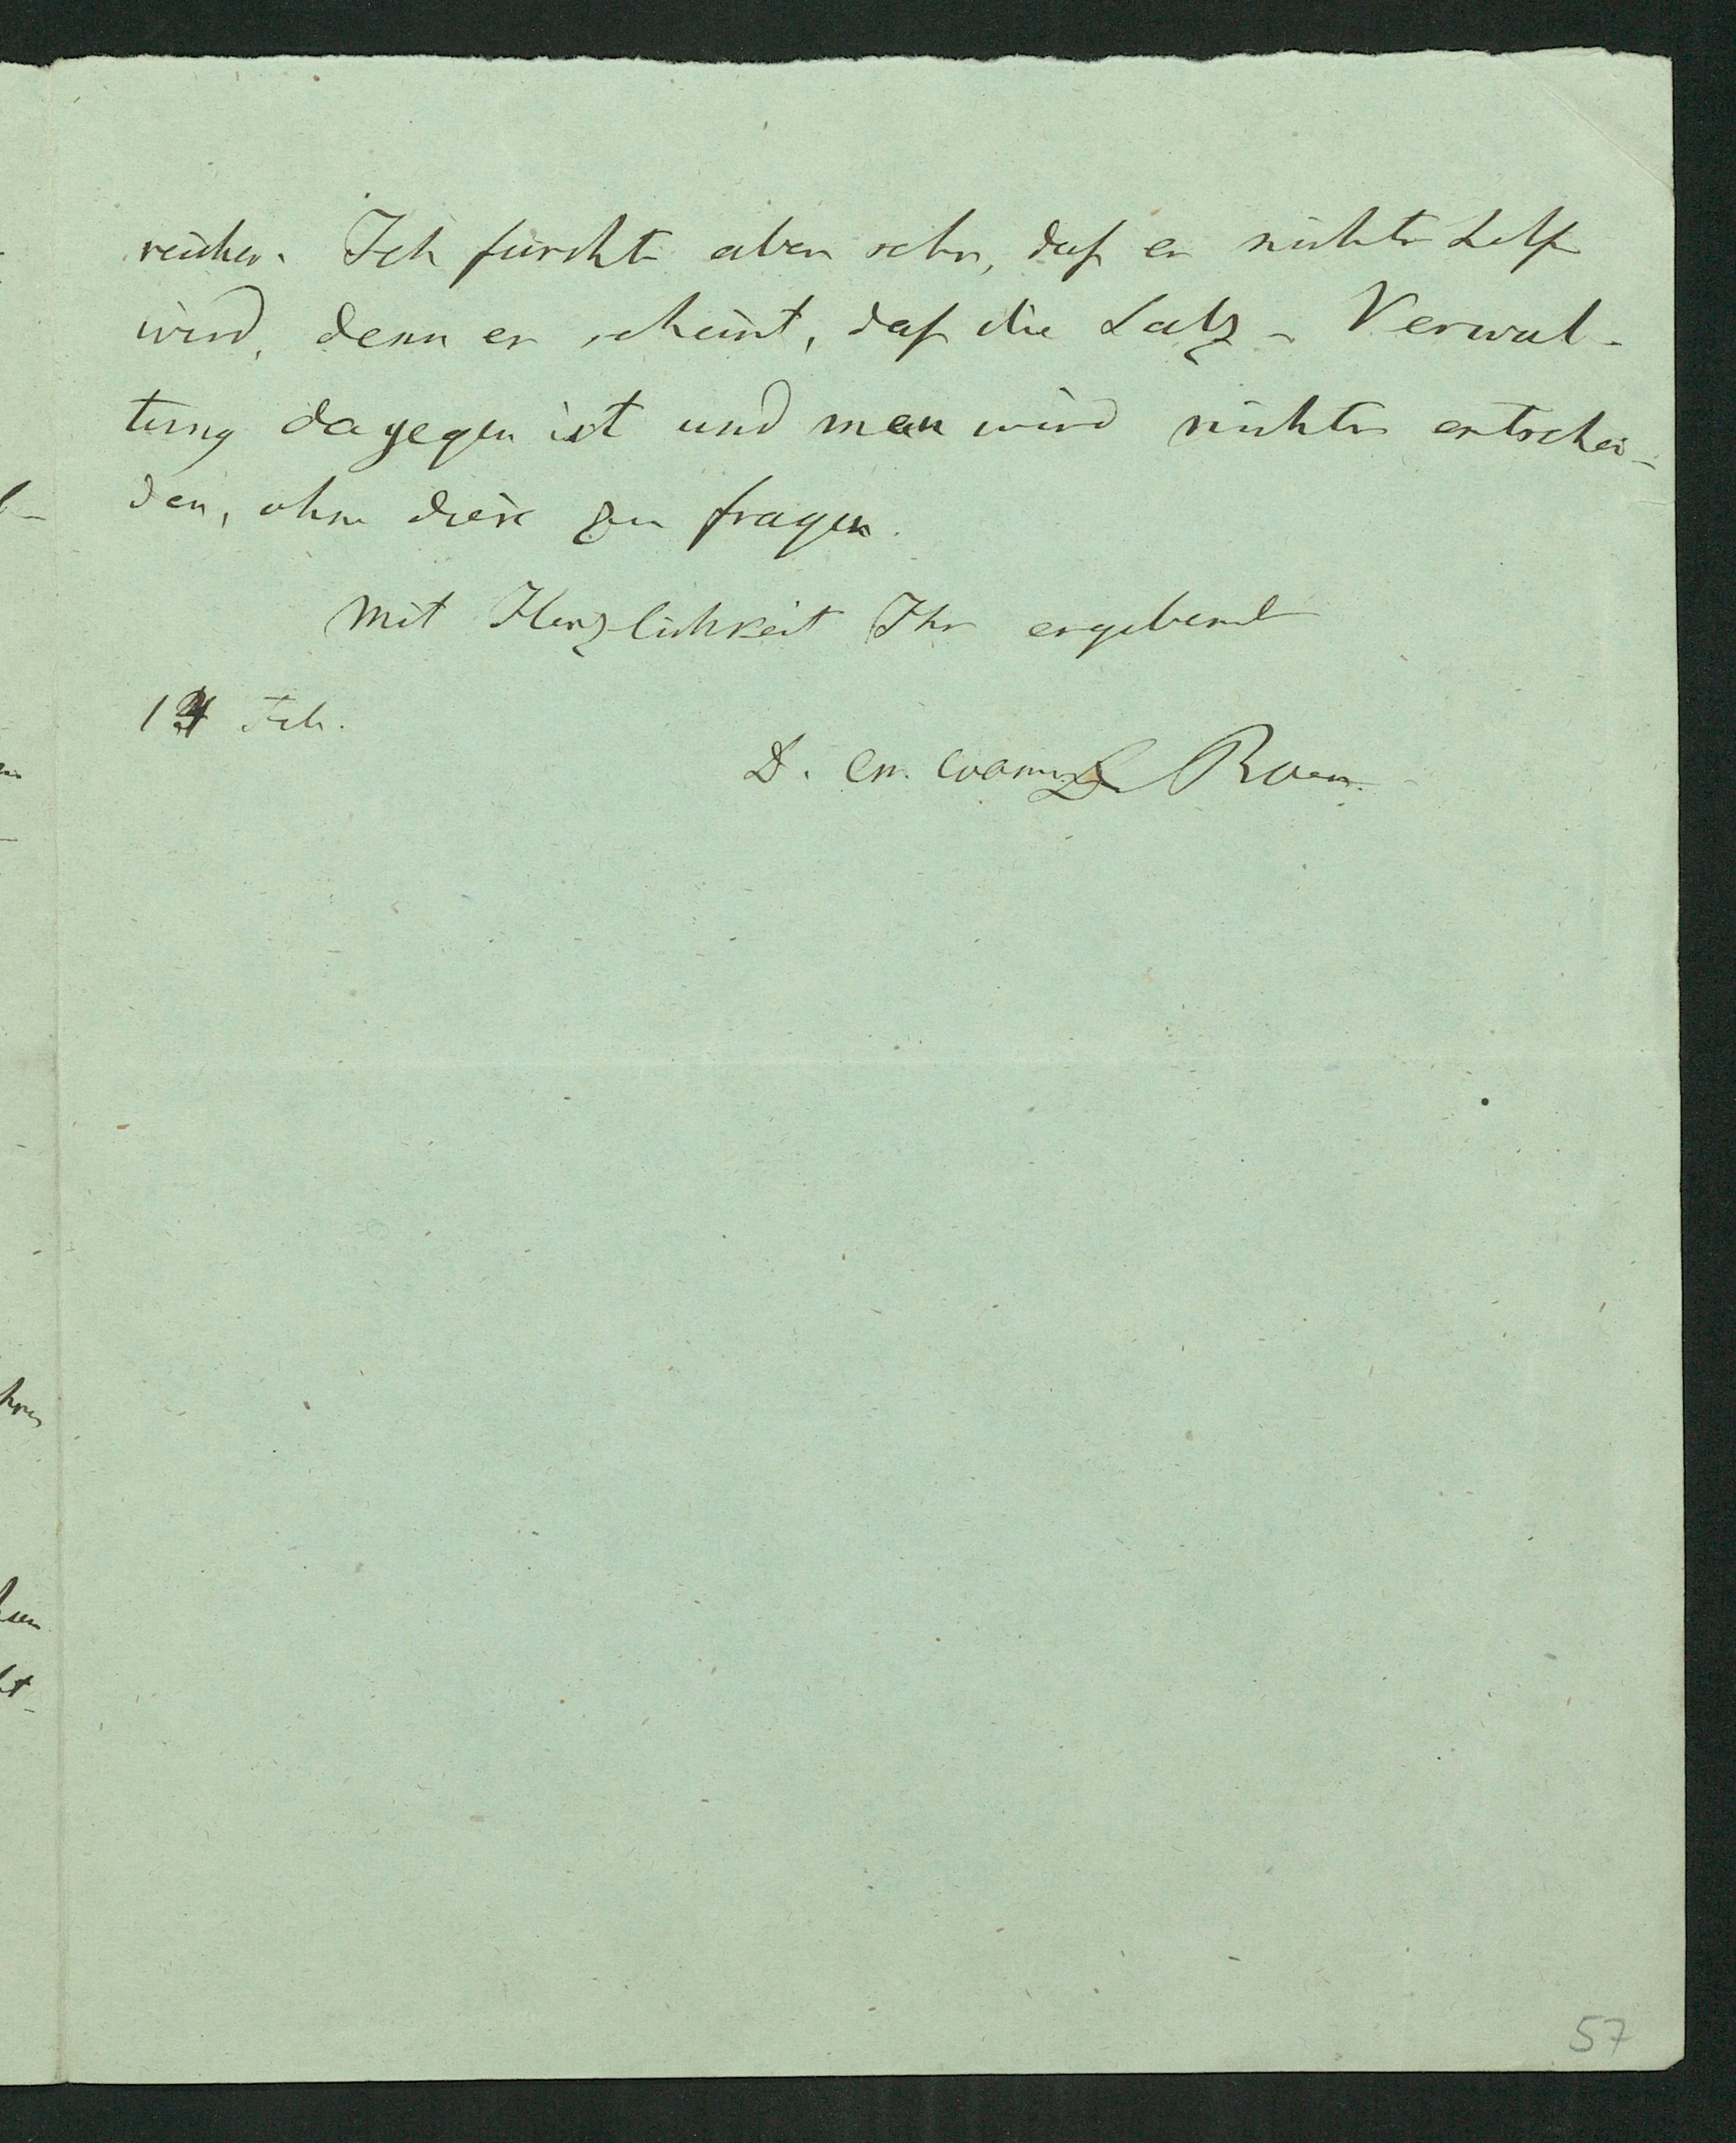 reichen. Ich fürchte aber sehr, daß es nichts helfen
wird, denn es scheint, daß die Salz-Verwal-
tung dagegen ist und man wird nichts entschei-
den, ohne diese zu fragen.
Mit Herzlichkeit Ihr ergebenst
14 Feb.
D.
57